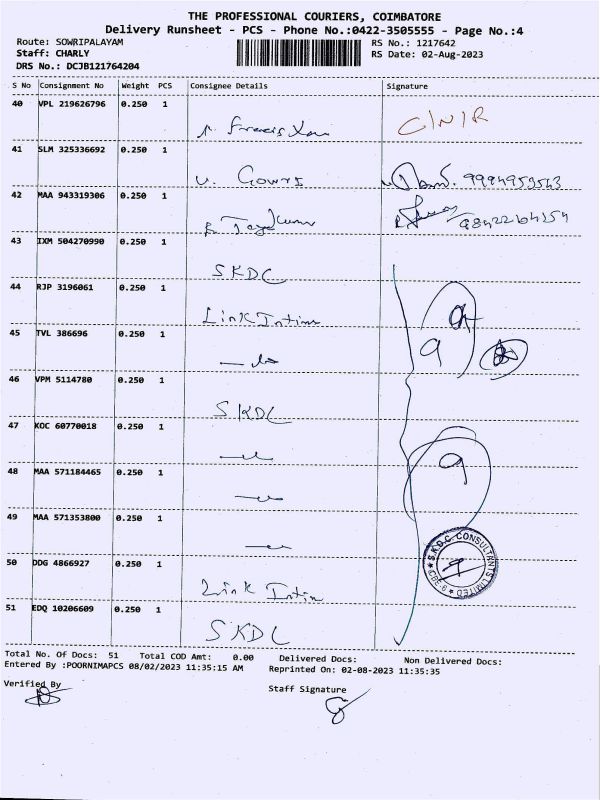 THE PROFESSIONAL COURIERS, COIMBATORE
Delivery Runsheet - PCS - Phone No.:0422-3505555 - Page No.:4
Route: SOWRIPALAYAM RS No.: 1217642
Staff: CHARLY RS Date: 02-Aug-2023
DRS No.: DCJB121764204
S No Consignment No Weight PCS Consignee Details Signature
40 VPL 219626796 0.250 1 Francis C/N/R
41 SLM 325336692 0.250 1 V. Gowri
42 MAA 943319306 0.250 1
43 IXM 504270990 0.250 1 SKDC
44 RJP 3196061 0.250 1 Link Intim
45 TVL 386696 0.250 1
46 VPM 5114780 0.250 1 SKDC
47 KOC 60770018 0.250 1
48 MAA 571184465 0.250 1
49 MAA 571353800 0.250 1
50 DDG 4866927 0.250 1 Link Intim
SKDC CONSULTANTS LIMITED CBE-6
51 EDQ 10206609 0.250 1 SKDC
Total No. Of Docs: 51 Total COD Amt: 0.00 Delivered Docs: Non Delivered Docs:
Entered By :POORNIMAPCS 08/02/2023 11:35:15 AM Reprinted On: 02-08-2023 11:35:35
Verified By Staff Signature